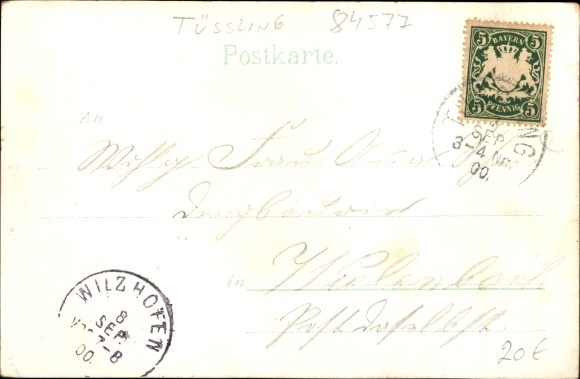 TÜSSLING 84577
Postkarte.
5 BAYERN 5
5 PFENNIG 5
NG
SEP
3-4 NM
00.
An
Wohlg. Frau Anna
in Wielenbach
Post daselbst.
WILZHOFEN
8
SEP
7-8
00.
20€